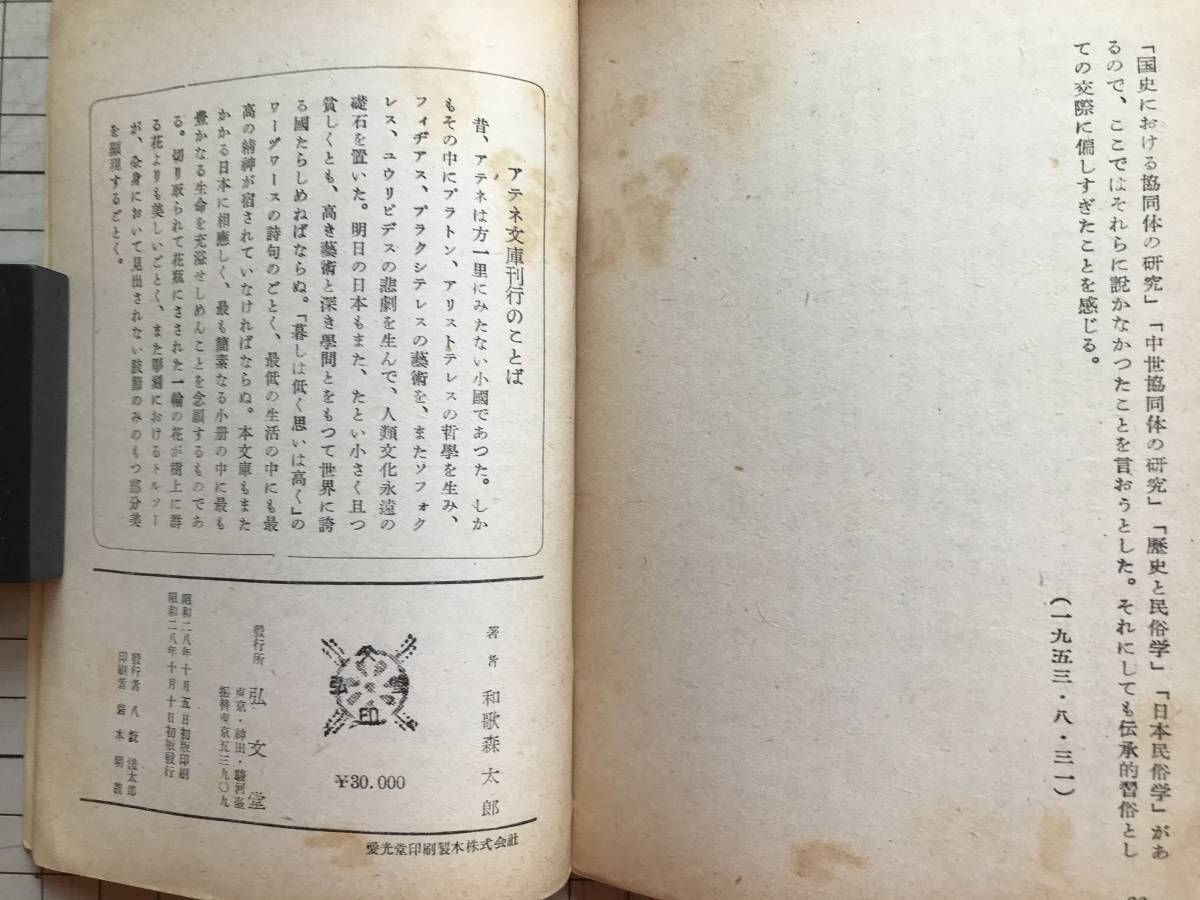 「国史における協同体の研究」「中世協同体の研究」「歴史と民俗学」「日本民俗学」があ
るので、ここではそれらに説かなかつたことを言おうとした。それにしても伝承的習俗とし
ての交際に偏しすぎたことを感じる。
(一九五三・八・三一)
アテネ文庫刊行のことば
昔、アテネは方一里にみたない小國であつた。しか
もその中にプラトン、アリストテレスの哲學を生み、
フィヂアス、プラクシテレスの藝術を、またソフォク
レス、ユウリピデスの悲劇を生んで、人類文化永遠の
礎石を置いた。明日の日本もまた、たとい小さく且つ
貧しくとも、高き藝術と深き學問とをもつて世界に誇
る國たらしめねばならぬ。「暮しは低く思いは高く」の
ワーヅワースの詩句のごとく、最低の生活の中にも最
高の精神が宿されていなければならぬ。本文庫もまた
かかる日本に相應しく、最も簡素なる小册の中に最も
豊かなる生命を充溢せしめんことを念願するものであ
る。切り取られて花瓶にさされた一輪の花が樹上に群
る花よりも美しいごとく、また彫刻におけるトルソー
が、全身において見出されない肢節のみのもつ部分美
を顯現するごとく。
著者 和歌森太郎
弘文堂印
¥30.000
發行所 弘文堂
東京・神田・駿河臺
振替東京五三九〇九
昭和二八年十月五日初版印刷
昭和二八年十月十日初版發行
發行者 八坂淺太郎
印刷者 岩本明義
愛光堂印刷製本株式会社